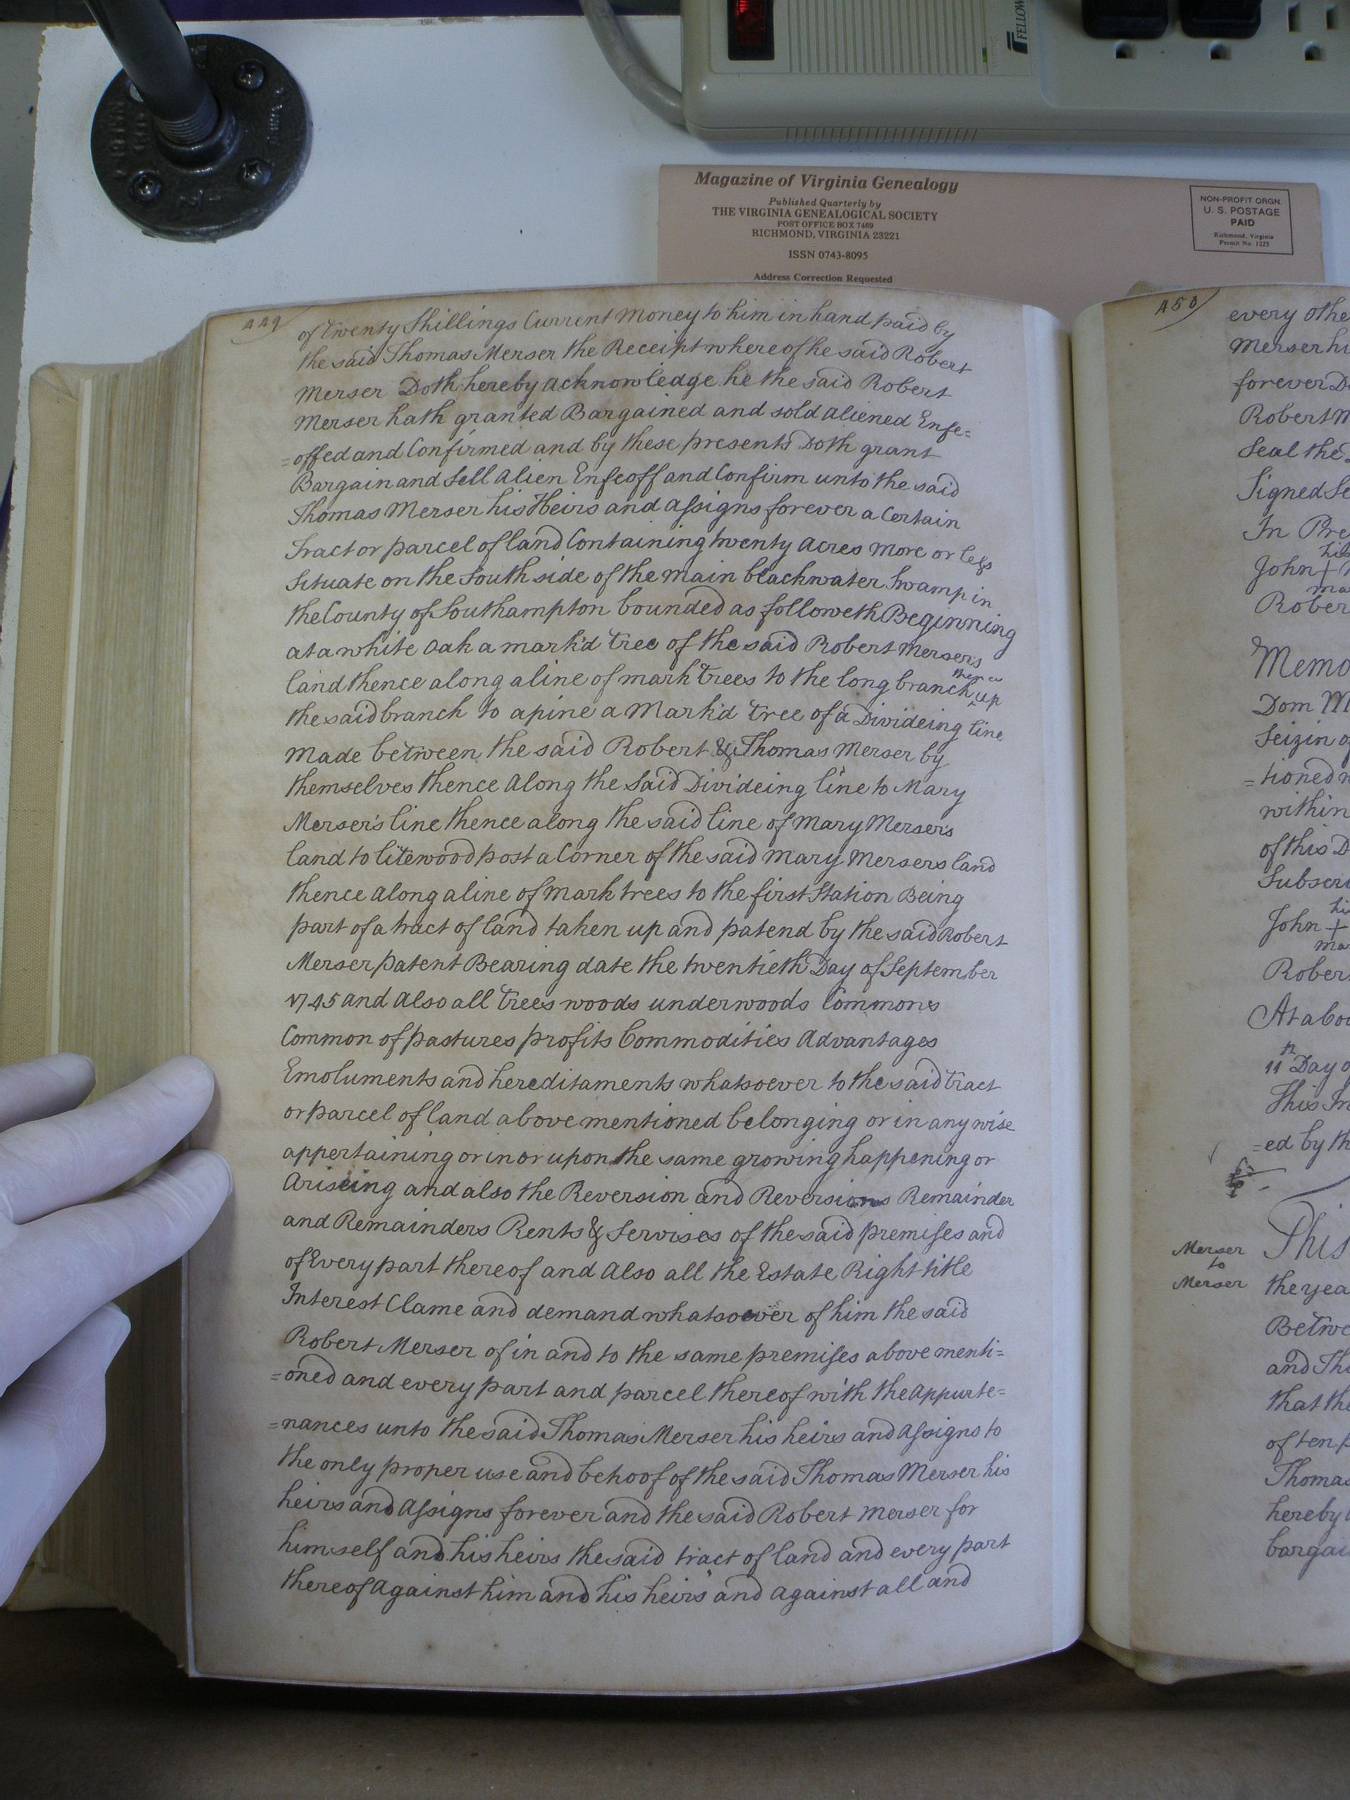 FELLOW
Magazine of Virginia Genealogy
Published Quarterly by
THE VIRGINIA GENEALOGICAL SOCIETY
POST OFFICE BOX 7469
RICHMOND, VIRGINIA 23221
ISSN 0743-8095
Address Correction Requested
NON-PROFIT ORGN.
U. S. POSTAGE
PAID
Richmond, Virginia
Permit No. 1225
449
of Twenty Shillings Current Money to him in hand paid by
the said Thomas Merser the Receipt where of he said Robert
Merser Doth hereby acknowledge he the said Robert
Merser hath granted Bargained and sold aliened Enfe=
=offed and Confirmed and by these presents Doth grant
Bargain and Sell Alien Enfeoff and Confirm unto the said
Thomas Merser his Heirs and assigns forever a Certain
Tract or parcel of land Containing twenty Acres more or less
Situate on the South side of the main blackwater Swamp in
the County of Southampton bounded as followeth Beginning
at a white Oak a mark'd tree of the said Robert Mersers
land thence along a line of mark trees to the long branch thence up
the said branch to a pine a Mark'd tree of a Divideing line
Made between the said Robert & Thomas Merser by
themselves thence Along the said Divideing line to Mary
Merser's line thence along the said line of Mary Mersers
land to litewood post a Corner of the said Mary Mersers land
thence Along a line of Mark trees to the first Station Being
part of a tract of land taken up and patend by the said Robert
Merser patent Bearing date the twentieth Day of September
1745 and Also all trees woods underwoods Commons
Common of pastures profits Commodities Advantages
Emoluments and hereditaments whatsoever to the said tract
or parcel of land above mentioned belonging or in any wise
appertaining or in or upon the same growing happening or
Ariseing and also the Reversion and Reversions Remainder
and Remainders Rents & Servises of the said premises and
of Every part thereof and Also all the Estate Right title
Interest Clame and demand whatsoever of him the said
Robert Merser of in and to the same premises above menti=
=oned and every part and parcel thereof with the Appurte=
=nances unto the said Thomas Merser his heirs and Assigns to
the only proper use and behoof of the said Thomas Merser his
heirs and Assigns forever and the said Robert Merser for
himself and his heirs the said tract of land and every part
thereof against him and his heirs and against all and
450
every othe
Merser hi
forever D
Robert M
Seal the
Signed Se
In Pre
his
John +
ma
Rober
Memo
Dom M
Seizin o
=tioned
within
of this D
Subscri
hi
John +
ma
Rober
At a Cou
11th Day o
This In
=ed by th
Merser
to
Merser
This
the yea
Betwe
and Tho
that the
of ten p
Thomas
hereby
bargai